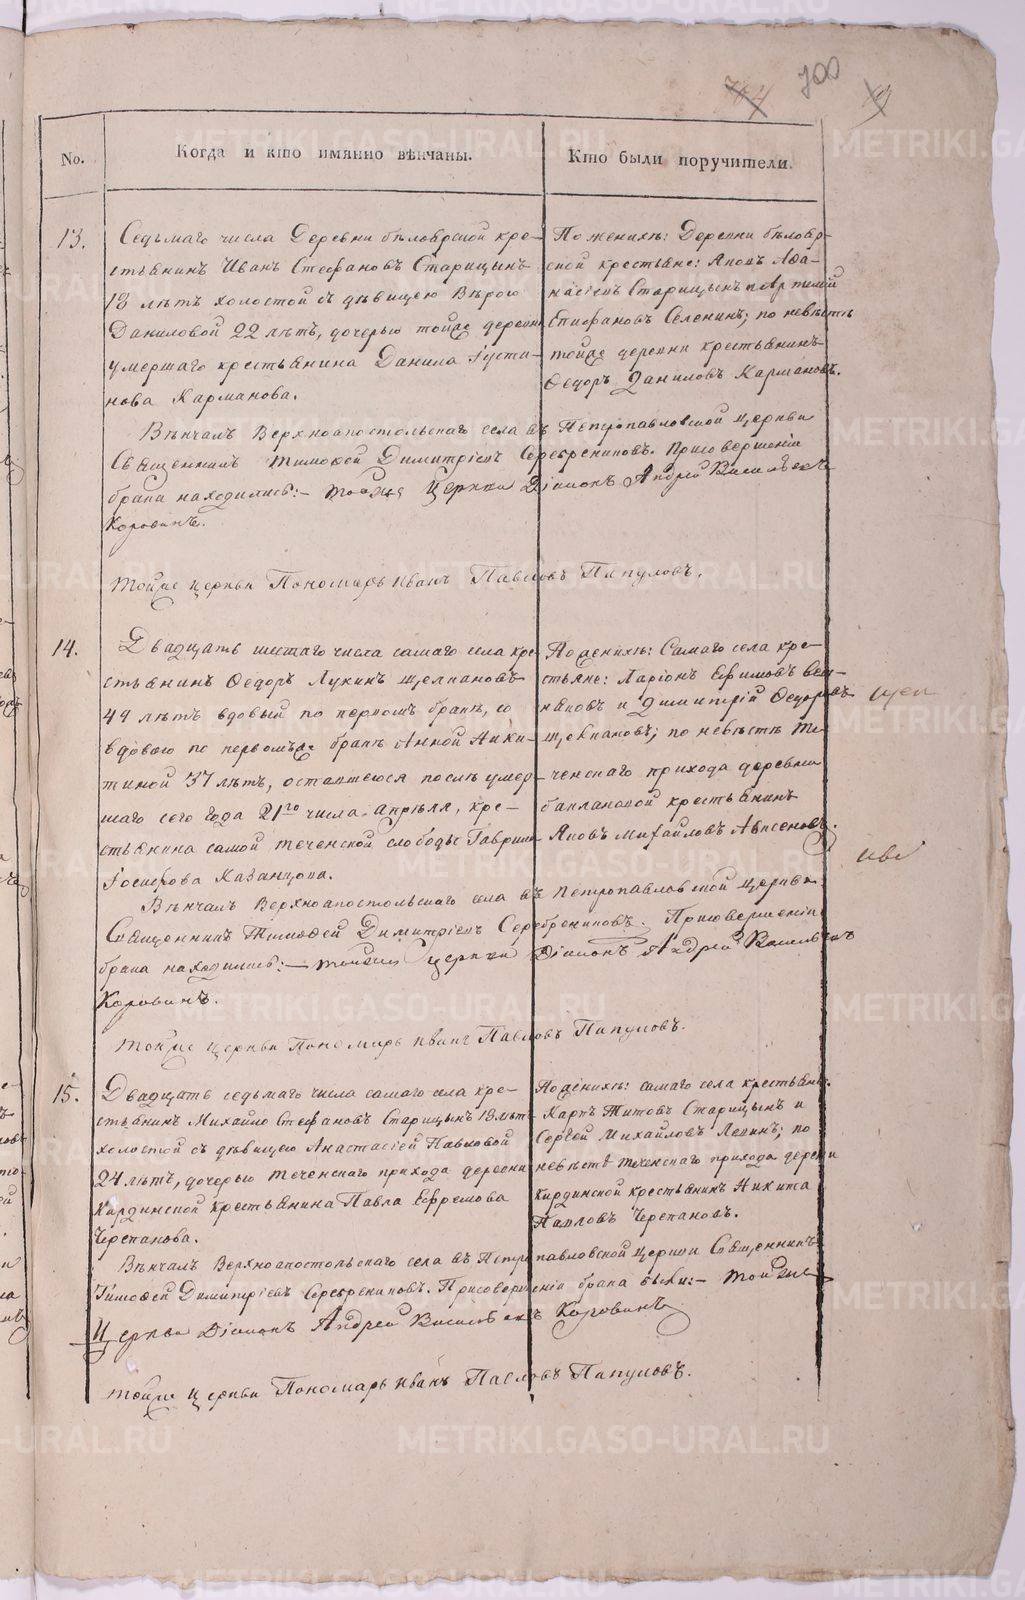 700
No.
Когда и кто имянно вѣнчаны.
Кто были поручители.
13.
Седьмаго числа Деревни бѣлоярской кре-
стьянинъ Иванъ Стефановъ Старицынъ
18 лѣтъ холостой съ дѣвицею Вѣрою
Даниловой 22 лѣтъ, дочерью тойже деревни
умершаго крестьянина Данила Густи-
нова Карманова.
По женихѣ: Деревни бѣлояр-
ской крестьяне: Яковъ Афа-
насіевъ Старицынъ и Артемій
Епифановъ Селенинъ; по невѣстѣ
тойже деревни крестьянинъ
Ѳедоръ Даниловъ Кармановъ.
Вѣнчалъ Верхноапостольскаго села въ Петропавловской церкви
Священникъ Тимоѳей Димитріевъ Серебрениковъ. Присовершеніи
брака находились:- тойже Церкви Діаконъ Андрей Васильевъ
Коровинъ.
тойже церкви Пономарь Иванъ Павловъ Папуловъ.
14.
Двадцать шестаго числа самаго села кре-
стьянинъ Ѳедоръ Лукинъ Щелкановъ
49 лѣтъ вдовый по первомъ бракѣ, со
вдовою по первомъже бракѣ Анной Ники-
тиной 37 лѣтъ, оставшеюся послѣ умер-
шаго сего года 21го числа апрѣля, кре-
стьянина самой теченской слободы Гаврила
Казанцова.
По женихѣ: Самаго села кре-
стьяне: Ларіонъ Ефимовъ
и Димитрій Ѳедоровъ
Щелкановъ; по невѣстѣ Те-
ченскаго прихода деревни
баклановой крестьянинъ
Яковъ Михайловъ Авксеновъ.
Вѣнчалъ Верхноапостольскаго села въ Петропавловской церкви
Священникъ Тимоѳей Димитріевъ Серебрениковъ. Присовершеніи
брака находились:- тойже церкви Діаконъ Андрей Васильевъ
Коровинъ.
тойже церкви Пономарь Иванъ Павловъ Папуловъ.
15.
Двадцать седьмаго числа самаго села кре-
стьянинъ Михайло Стефановъ Старицынъ 18 лѣтъ
холостой съ дѣвицею Анастасіей Павловой
24 лѣтъ, дочерью теченскаго прихода деревни
Кирдинской крестьянина Павла Ефремова
Черепанова.
По женихѣ: самаго села крестьяне:
Карпъ Титовъ Старицынъ и
Сергей Михайловъ Легинъ; по
невѣстѣ теченскаго прихода деревни
Кирдинской крестьянинъ Никита
Павловъ Черепановъ.
Вѣнчалъ Верхноапостольскаго села въ Петропавловской церкви Священникъ
Тимоѳей Димитріевъ Серебрениковъ. Присовершеніи брака были:- тойже
Церкви Діаконъ Андрей Васильевъ Коровинъ
тойже церкви Пономарь Иванъ Павловъ Папуловъ.